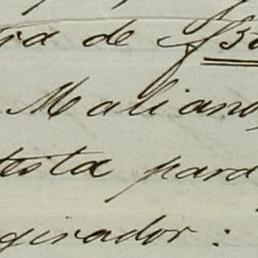 ra de
Maliano
testa para
girador: